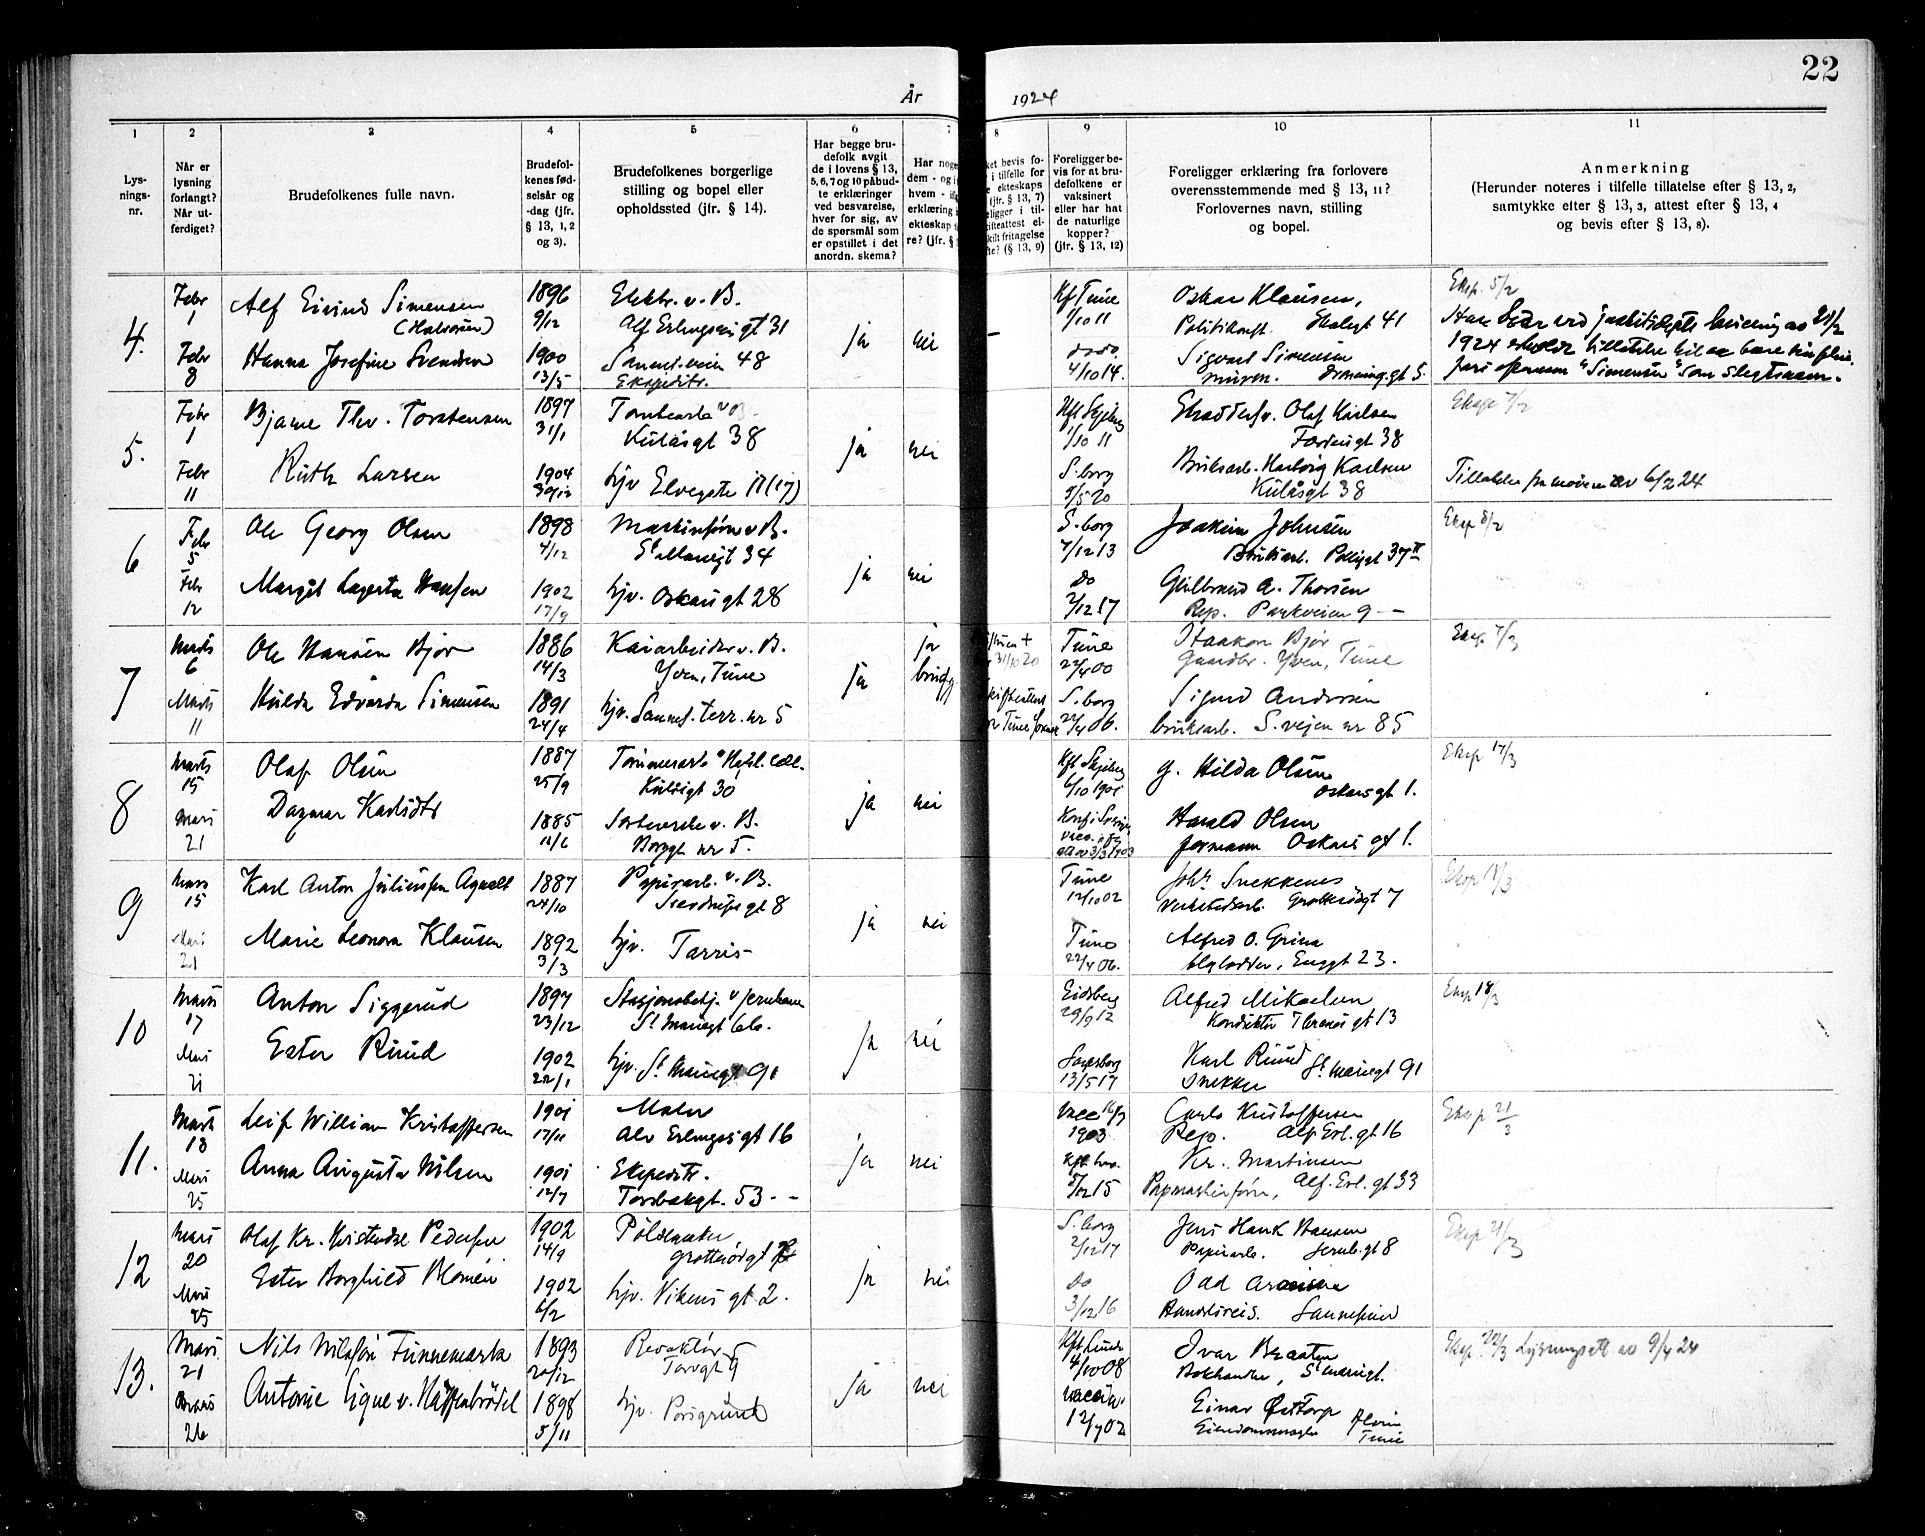 22
År 1924
1 2 3 4 5 6 7 8 9 10 11
Lys-
nings-
nr.
Når er
lysning
forlangt?
Når ut-
ferdiget?
Brudefolkenes fulle navn.
Brudefol-
kenes fød-
selsår og
-dag (jfr.
§ 13, 1, 2
og 3).
Brudefolkenes borgerlige
stilling og bopel eller
opholdssted (jfr. § 14).
Har begge bru-
defolk avgit
de i lovens § 13,
5, 6, 7 og 10 påbud-
te erklæringer
ved besvarelse,
hver for sig, av
de spørsmål som
er opstillet i det
anordn. skema?
Har noge
dem - og i
hvem -
erklæring
ekteskap
re? (jfr. §
ket bevis fo-
i tilfelle for
ekteskaps
(jfr. § 13, 7)
eligger i til-
skifteattest el-
skilt fritagelse
(§ 13, 9)
Foreligger be-
vis for at bru-
defolkene er
vaksinert
eller har hat
de naturlige
kopper?
(jfr. § 13, 12)
Foreligger erklæring fra forlovere
overensstemmende med § 13, 11?
Forlovernes navn, stilling
og bopel.
Anmerkning
(Herunder noteres i tilfelle tillatelse efter § 13, 2,
samtykke efter § 13, 3, attest efter § 13, 4
og bevis efter § 13, 8).
4.
Febr 1
Febr 8
Alf Eivind Simensen
(Halvorsen)
Hanna Josefine Svendsen
1896
9/12
1900
13/5
Elektr. v. B.
Alf Erlingsøngt 31
Sannes.veien 48
Ekspeditr.
ja nei –
Kf Tune
1/10 11
do do.
4/10 14.
Oskar Klausen,
Politikonst. Skolegt 41
Sigvart Simensen
murer. Dronning.gt 5.
Eksp. 5/2
1924 tillatelse til at bære
"Simensen" som slegtsnavn.
5.
Febr 1
Febr 11
Bjarne Thv. Torstensen
Ruth Larsen
1897
31/1
1904
30/12
Tomtearb v B.
Kulåsgt 38
hjv Elvegata 11 (17)
ja nei
Kft Skjeberg
1/10 11
S.borg
9/5 20
Skræddersv. Olaf Karlsen
38
Bruksarb. Hartvig Karlsen
Kulåsgt 38
Eksp 7/2
Tillatelse fra moren av 6/2 24
6
Febr 5
Febr 12
Ole Georg Olsen
Margit Lagerta Hansen
1898
4/12
1902
17/9
Maskinfører v B.
St Mariegt 34
hjv. Oskars gt 28
ja nei
S.borg
7/12 13
do
2/12 17
Joakim Johnsen
Bruksarb. 37 II
Gulbrand A. Thorsen
Rep. Parkveien 9 –
Eksp 8/2
7
Marts 6
Marts 11
Ole Hansen Bjør
Hulda Edvarda Simensen
1886
14/3
1891
24/4
Kaiarbeider v. B.
Yven, Tune
hjv. Sannes. terr. nr 5
ja
ja
brudg
31/10 20
Skifteattest
Tune
22/4 00
S.borg
22/4 06.
Haakon Bjør
Gaardbr. Yven, Tune
Sigurd Andersen
bruksarb. S.veien nr 85
Eksp 7/3
8
Marts 15
Mars 21
Olaf Olsen
Dagmar Karlsdtr
1887
25/9
1885
Tømmerarb
Kulåsgt 30
v. B.
Borggt nr 5.
ja nei
Kft Skjeberg
6/10 1901
Konf i Sverige
vacc.
3/3 1903
g. Hilda Olsen
Oskars gt 1.
Harald Olsen
formann Oskars gt 1.
Eksp 17/3
9
Mars 15
Mars 21
Karl Anton Juliussen Agnalt
Marie Leonora Klausen
1887
24/10
1892
3/3
Papirarb. v. B.
gt 8
hjv. Tarris–
ja nei
Tune
12/10 02
Tune
22/4 06.
Joh. Snekkenes
Verkstedsarb. Grotterødgt 7
Alfred O. Grina
Enggt 23.
Eksp 17/3
10
Mars 17
Mars 21
Anton Siggerud
Ester Ruud
1897
23/12
1902
22/1
Stasjonsbetj. v jernbane
St Mariegt 66.
hjv. St Mariegt 91
ja nei
Eidsberg
29/9 12
Sarpsborg
13/5 17
Alfred Mikaelsen
Konduktør gt 13
Karl Ruud
snekker St Mariegt 91
Eksp 18/3
11.
Mars 18
Mars 25
Leif William Kristoffersen
Anna Augusta Nilsen
1901
17/11
1901
12/7
Maler
Alv Erlingss gt 16
Ekspeditr.
Torsbakkgt. 53. –
ja nei
Vacc 16/9
1903
Kft
5/12 15
Carlo Kristoffersen
Rep. Alf. Erl. gt 16
Kr. Martinsen
Papmaskinfører, Alf. Erl. gt 33
Eksp 21/3
12
Mars 20
Mars 25
Olaf Kr. Pedersen
Ester Borghild Blomén
1902
14/9
1902
6/2
Pølsemaker
Grotterødgt
hjv. Vikens gt 2.
ja nei
S.borg
2/12 17
Do
3/12 16
Jens Hauk Hansen
Papirarb. Jernb.gt 8
Odd
Handelsreis. Sannesund
Eksp 21/3
13.
Mars 21
Mars 26
Nils Nilssøn Finnemark
Antonie Signe v. Haffenbrødel
1893
20/12
1898
5/11
Redaktør
Torvgt 9
hjv. Porsgrund
ja nei
Kft Lunde
4/10 08
vaccin.
12/9 02
Ivar Braaten
Bokhandler, St Mariegt.
Einar Østtorp
Eiendomsmegler Alvim
Tune
Eksp. 22/3 Lysningsatt av 9/4 24